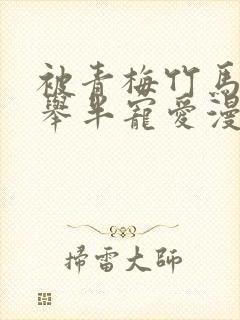 被青梅竹馬
舉半寵愛漫
掃雷大師